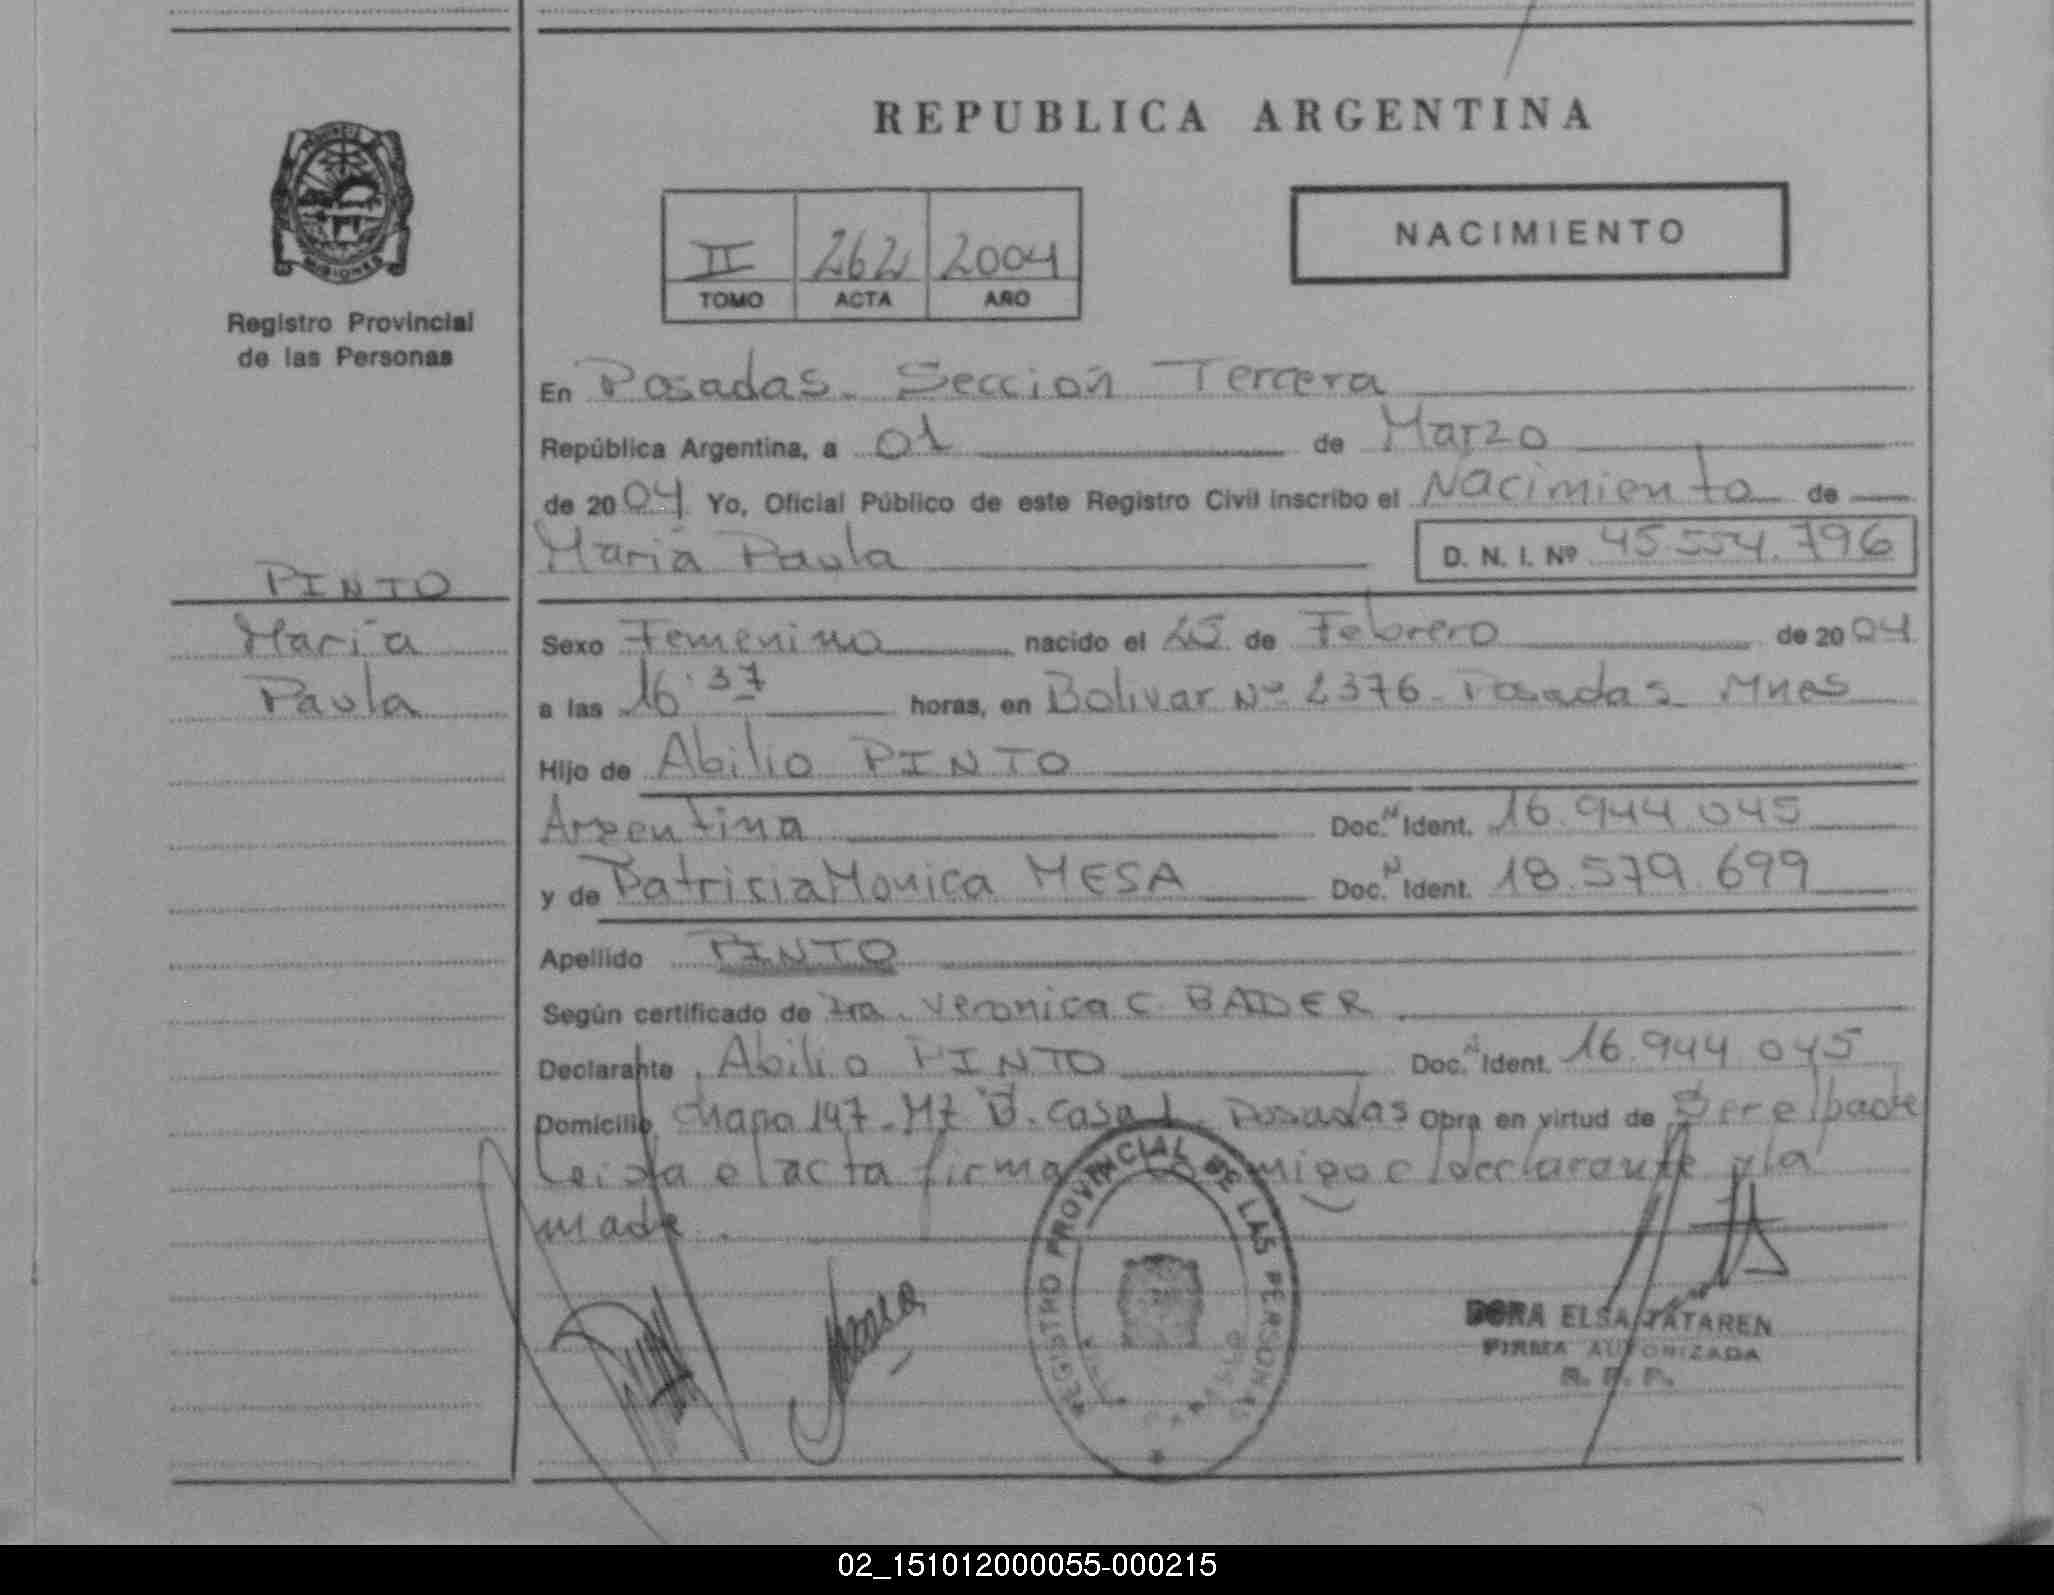 REPUBLICA ARGENTINA
PROVINCIA
MISIONES
Registro Provincial
de las Personas
II 262 2004
TOMO ACTA AÑO
NACIMIENTO
En Posadas. Sección Tercera
República Argentina, a 01 de Marzo
de 2004 Yo, Oficial Público de este Registro Civil inscribo el Nacimiento de
María Paula D. N. I. Nº 45.554.796
PINTO
María
Paula
Sexo Femenino nacido el 25 de Febrero de 2004
a las 16.37 horas, en Bolivar Nº 2376 - Posadas Mnes
Hijo de Abilio PINTO
Argentina Doc. N Ident. 16.944 045
y de Patricia Monica MESA Doc. N Ident. 18.579.699
Apellido PINTO
Según certificado de Dra. Veronica C. BADER
Declarante Abilio PINTO Doc. N Ident. 16.944 045
Domicilio Chapa 147 - Mz D. Casa 1. Posadas Obra en virtud de Ser el padre
Leida el acta firma conmigo el declarante y la
madre.
REGISTRO PROVINCIAL DE LAS PERSONAS
DORA ELSA TATAREN
FIRMA AUTORIZADA
R. P. P.
02_151012000055-000215